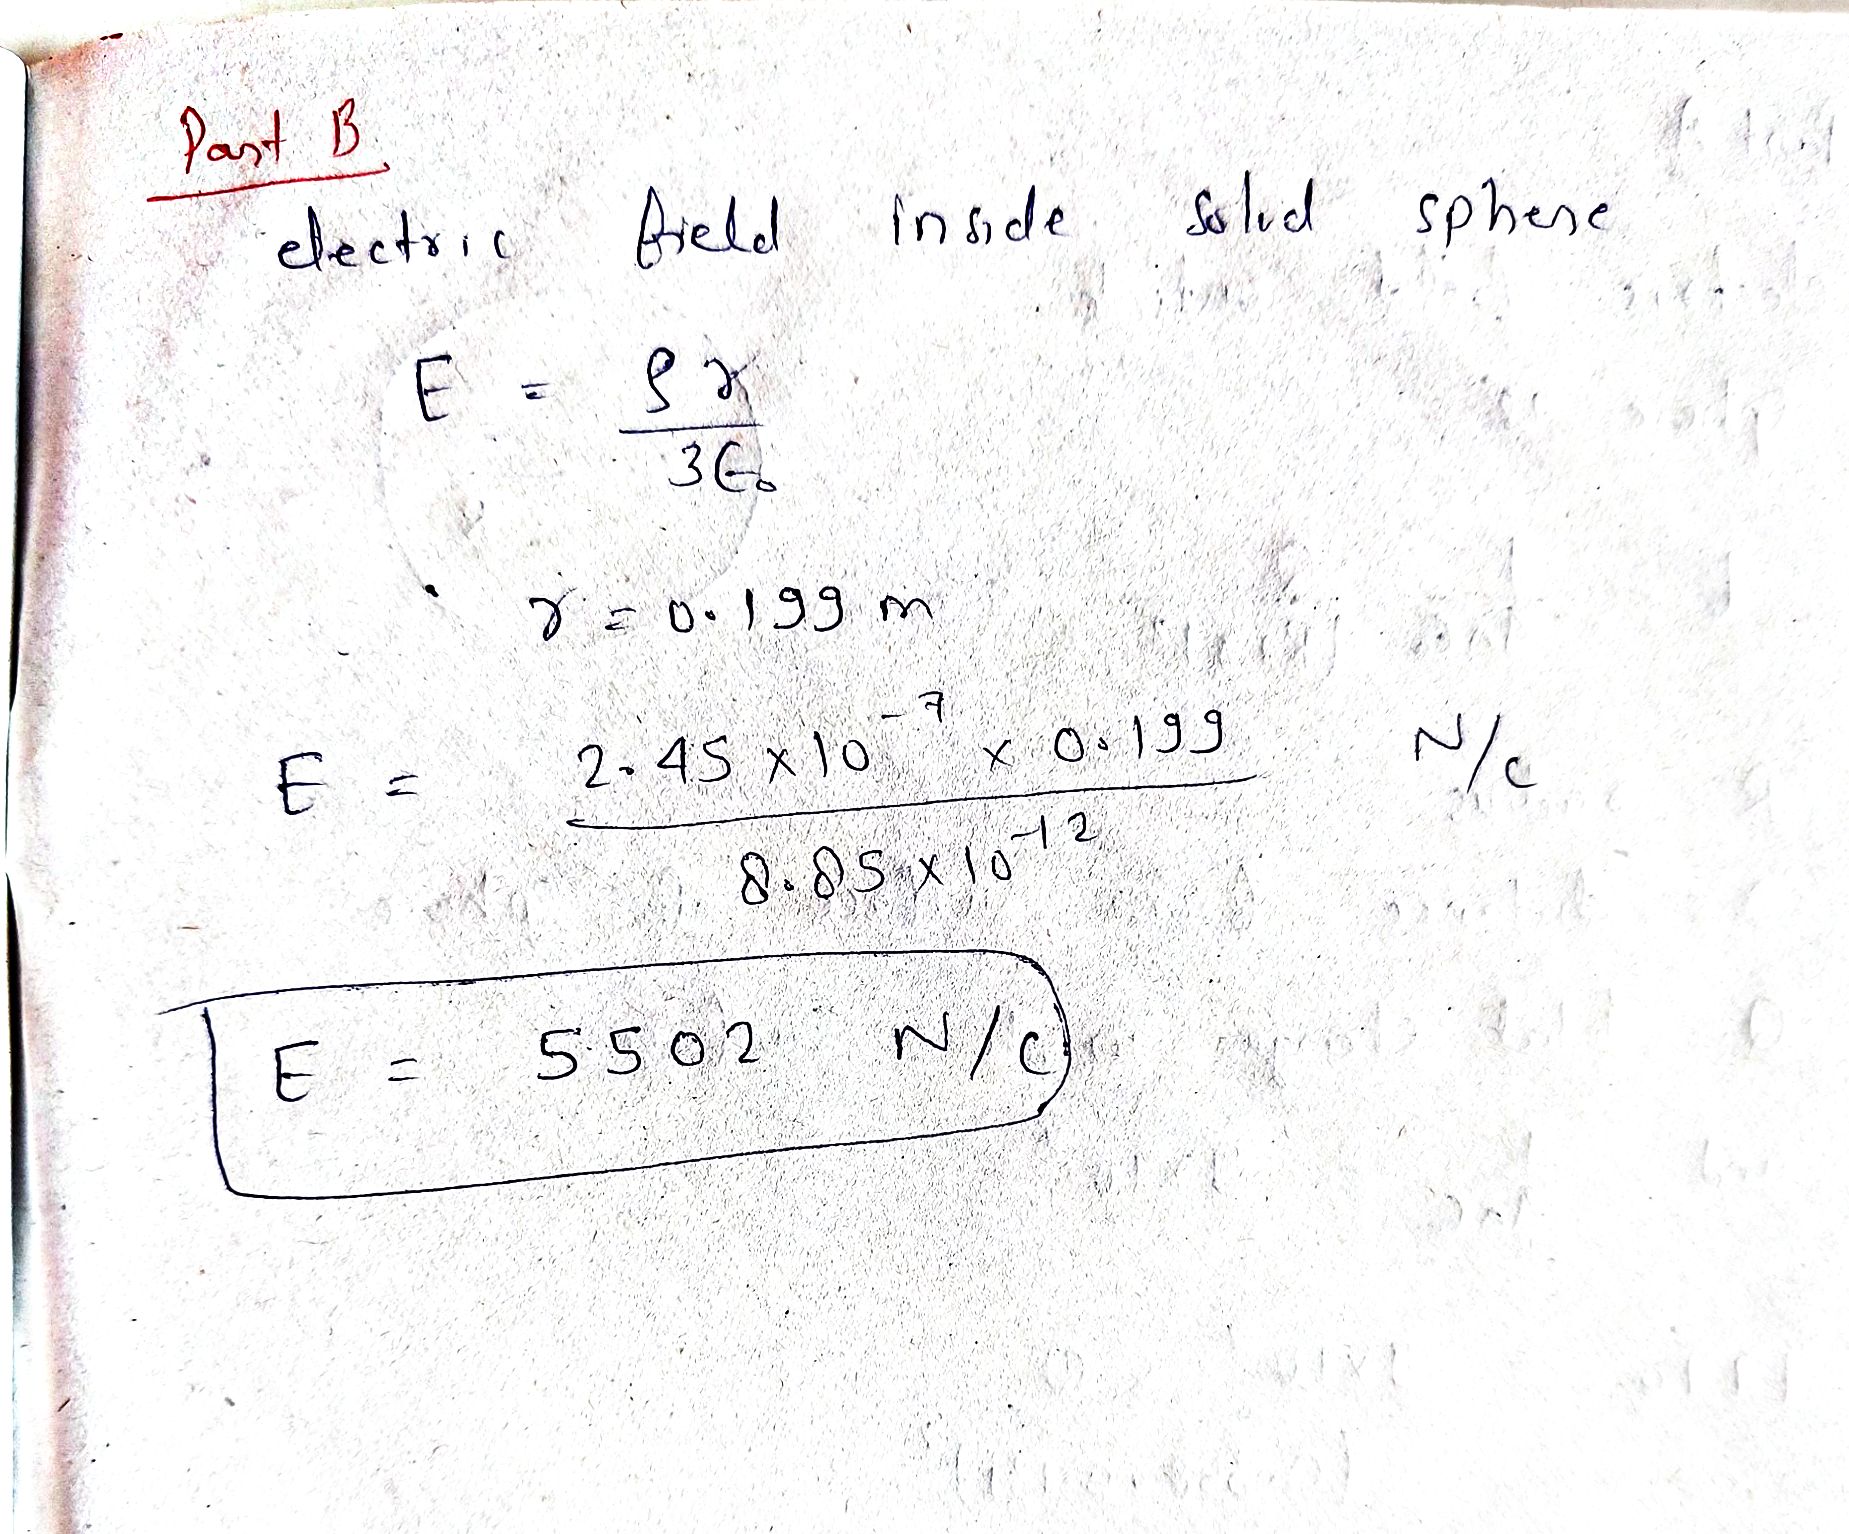 Part B
electric field inside solid sphere
E = ρr / 3ϵ₀
r = 0.199 m
E = 2.45 × 10⁻⁷ × 0.199 / 8.85 × 10⁻¹² N/C
E = 5502 N/C